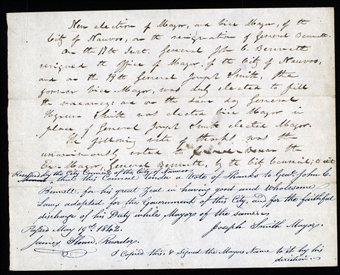 New election of Mayor, and Vice Mayor, of the
City of Nauvoo, on the resignation of General Bennett.
On the 17th Inst. General John C. Bennett
resigned the office of Mayor, of the City of Nauvoo,
and on the 19th General Joseph Smith, the
former Vice Mayor, was duly elected to fill
the vacancy and on the same day General
Hyrum Smith was elected Vice Mayor in
place of General Joseph Smith elected Mayor.
The following vote of thanks was then
unanimously voted to the
Ex Mayor, General Bennett, by the City Council; to wit
Resolved by the City Council of the City of Nauvoo
that this Council tender a Vote of Thanks to Genl. John C.
Bennett, for his great Zeal in having good and Wholesome
Laws adopted for the Government of this City, and for the faithful
discharge of his Duty while Mayor of the same
Passed May 19th, 1842. Joseph Smith Mayor.
James Sloan, Recorder.
I Copied this, & Signed the Mayors Name to it by his
direction